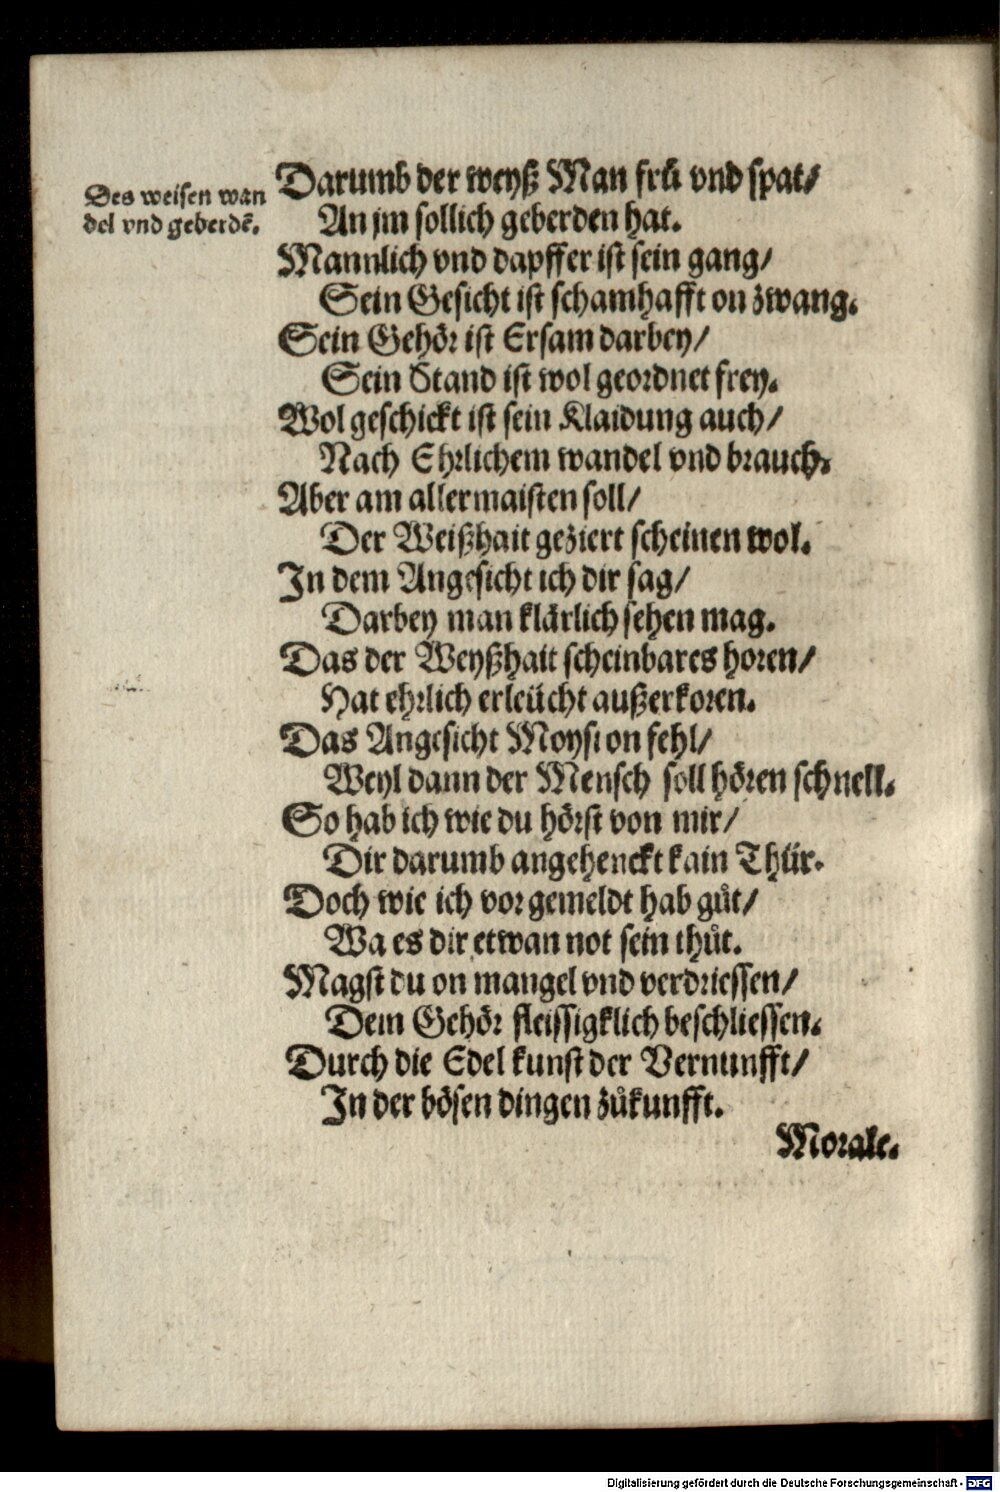 Des weisen wan
del vnd geberdē.
Darumb der weyß Man frů vnd spat/
An jm sollich geberden hat.
Mannlich vnd dapffer ist sein gang/
Sein Gesicht ist schamhafft on zwang.
Sein Gehör ist Ersam darbey/
Sein Stand ist wol geordnet frey.
Wol geschickt ist sein Klaidung auch/
Nach Ehrlichem wandel vnd brauch.
Aber am allermaisten soll/
Der Weißhait geziert scheinen wol.
In dem Angesicht ich dir sag/
Darbey man klärlich sehen mag.
Das der Weyßhait scheinbares horen/
Hat ehrlich erleücht außerkoren.
Das Angesicht Moysi on fehl/
Weyl dann der Mensch soll hören schnell.
So hab ich wie du hörst von mir/
Dir darumb angehenckt kain Thür.
Doch wie ich vor gemeldt hab gůt/
Wa es dir etwan not sein thůt.
Magst du on mangel vnd verdriessen/
Dein Gehör fleissigklich beschliessen.
Durch die Edel kunst der Vernunfft/
In der bösen dingen zůkunfft.
Morale.
Digitalisierung gefördert durch die Deutsche Forschungsgemeinschaft - DFG